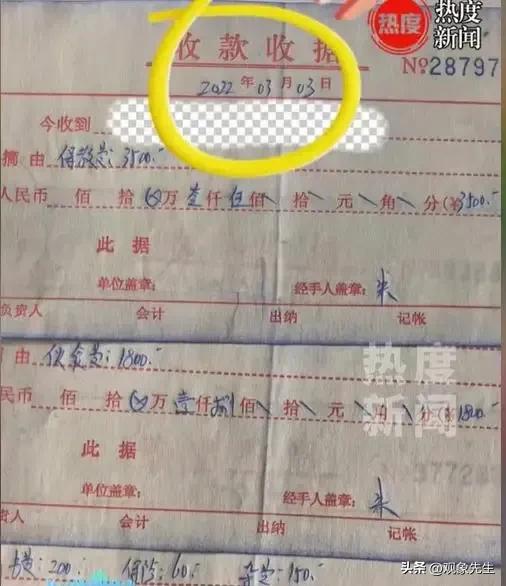 热度
新闻
收款收据
№28797
2022年03月03日
今收到
摘由 保教费:3500.-
人民币 佰 拾 万 壹仟 伍佰 拾 元 角 分(¥3500.-
此据
单位盖章: 经手人盖章:朱
负责人 会计 出纳 记帐
由 伙食费:1800.-
民币 佰 拾 万 壹仟 捌佰 拾 元 角 分(¥1800.-
热度
新闻
此据
37728
单位盖章: 经手人盖章:朱
责人 会计 出纳 记帐
费:200.- 保险:60.- 杂费:150.-
头条@观象先生